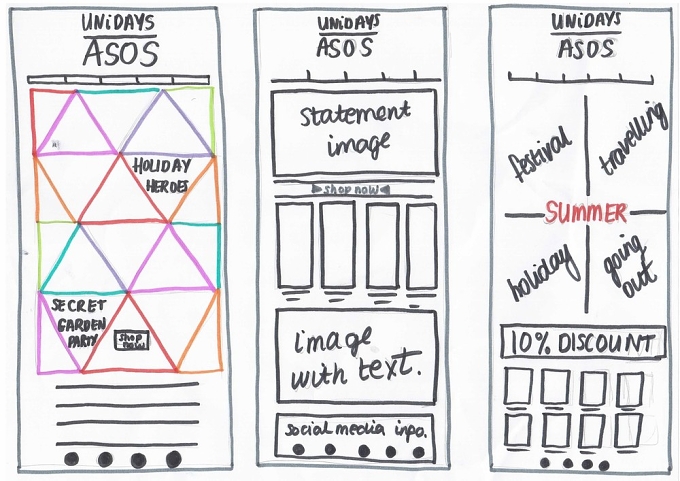 UNiDAYS
ASOS
HOLIDAY
HEROES
SECRET
GARDEN
PARTY
shop
now
UNiDAYS
ASOS
Statement
image
shop now
image
with text.
social media info.
UNiDAYS
ASOS
festival
travelling
SUMMER
holiday
going
out
10% DISCOUNT